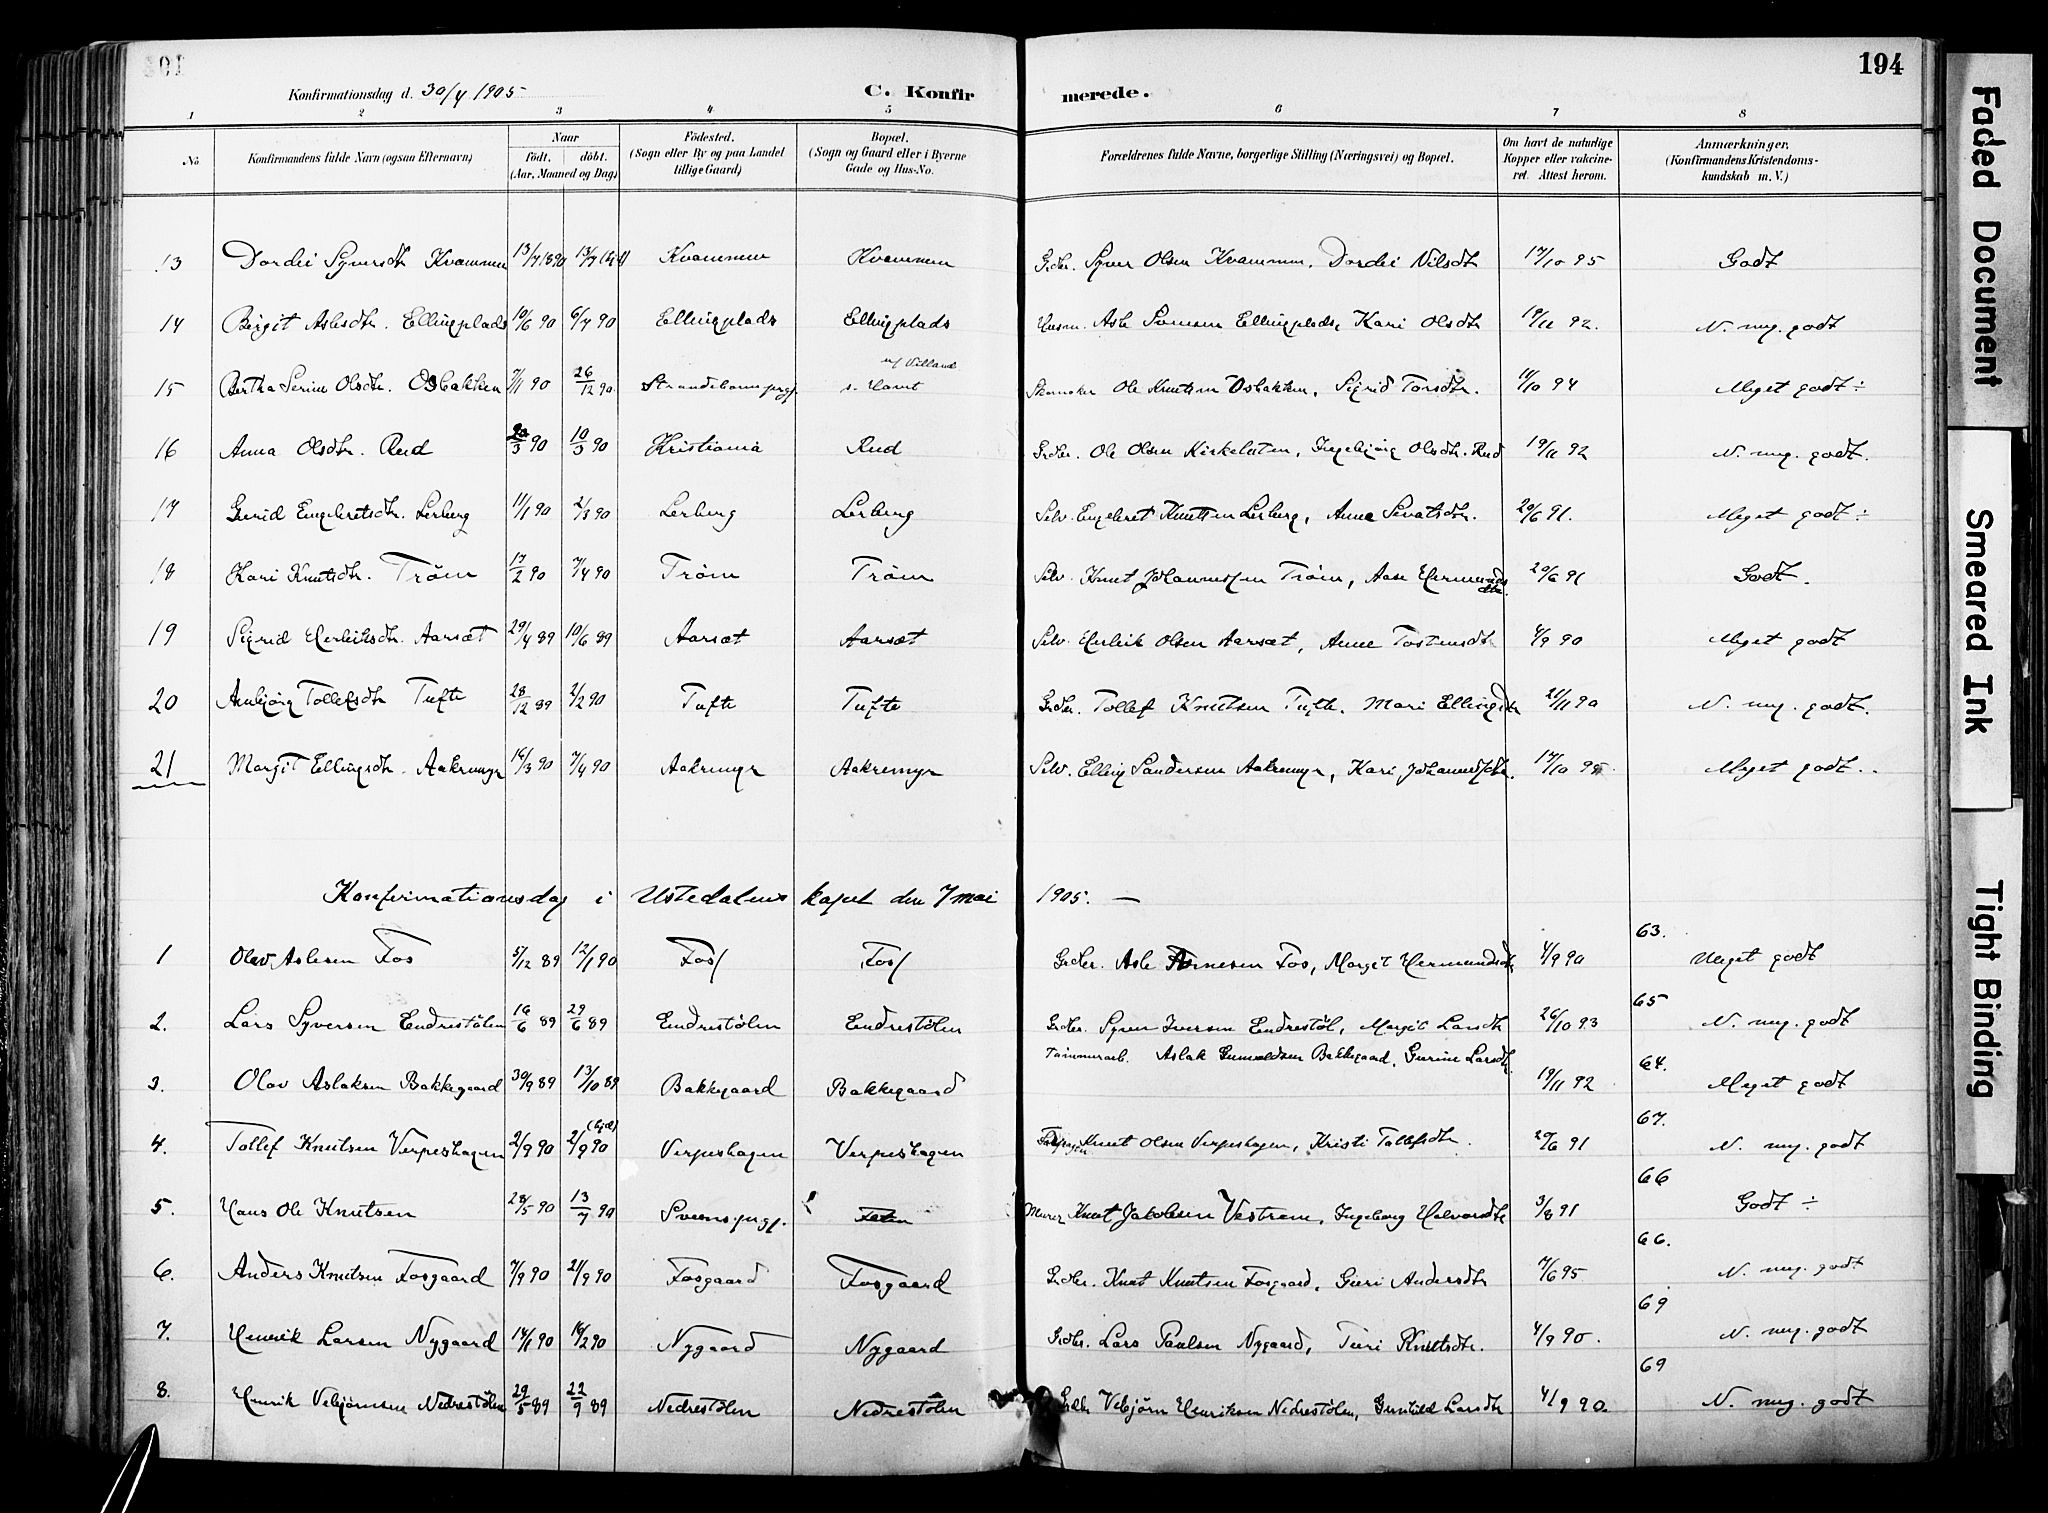 194
Konfirmationsdag d. 30/4 1905 C. Konfirmerede.
1 2 3 4 5 6 7 8
No Konfirmandens fulde Navn (ogsaa Efternavn) Naar født. døbt. (Aar, Maaned og Dag) Fødested. (Sogn eller By og paa Landet tillige Gaard) Bopæl. (Sogn og Gaard eller i Byerne Gade og Hus-No. Forældrenes fulde Navne, borgerlige Stilling (Næringsvei) og Bopæl. Om havt de naturlige Kopper eller vakcineret. Attest herom. Anmærkninger. (Konfirmandens Kristendomskundskab m. V.)
13 Dordei Syversdtr Kvammen 13/7 1890 13/7 Kvammen Kvammen Grdbr. Syver Olsen Kvammen, Dordei Nilsdtr 17/10 95 Godt
14 Birgit Aslesdtr. Ellingplads 10/6 90 6/7 90 Ellingplads Ellingplads Husm. Asle Ellingplads, Kari Olsdtr 19/11 92. N. mg. godt
15 Bertha Serine Olsdtr. Osbakken 7/11 90 26/12 90 Ole Knutsen Osbakken, Sigrid Torsdtr. 11/10 94 Meget godt ÷
16 Anna Olsdtr. Rud 20/3 90 10/3 90 Kristiania Rud Grdbr. Ole Olsen Kirkeluten, Ingebjørg Olsdtr. Rud 19/11 92 N. mg. godt.
17 Gunid Engebretsdtr. Lerberg 11/1 90 2/3 90 Lerberg Lerberg Selv. Engebret Knutsen Lerberg, Anne 20/6 91. Meget godt ÷
18 Kari Knutsdtr. Trøim 17/2 90 7/4 90 Trøim Trøim Selv. Knut Johannessen Trøim, Aase Hermundsdtr. 20/6 91 Godt.
19 Sigrid Herleiksdtr. Aarsæt 29/4 89 10/6 89 Aarsæt Aarsæt Selv. Herleik Olsen Aarsæt, Anne Tostensdtr 4/9 90 Meget godt
20 Anbjørg Tollefsdtr Tufte 28/12 89 2/2 90 Tufte Tufte Grdbr. Tollef Knutsen Tufte, Mari Ellingsdtr 21/11 90 N. mg. godt.
21 Margit Ellingsdtr. Aakremyr 16/3 90 7/4 90 Aakremyr Aakremyr Selv. Elling Sandersen Aakremyr, Kari Johannesdtr. 17/10 95 Meget godt.
Konfirmationsdag i Ustedalens kapel den 7 mai 1905. —
1 Olav Aslesen Fos 5/12 89 12/1 90 Foss Foss Grdbr. Asle Arnesen Fos, Margit Hermundsdtr 4/9 90 63. Meget godt
2. Lars Syversen Endrestølen 16/6 89 29/6 89 Endrestølen Endrestølen Grdbr. Syver Iversen Endrestøl, Margit Larsdtr 26/10 93 65 N. mg. godt
3. Olav Aslaksen Bakkegaard 30/9 89 13/10 89 Bakkegaard Bakkegaard Tømmerarb. Aslak Gunvaldsen Bakkegaard, Gurine Larsdtr 19/11 92 64. Meget godt
4. Tollef Knutsen Verpeshagen 2/9 90 2/9 90 Verpeshagen Verpeshagen Knut Olsen Verpeshagen, Kristi Tollefsdtr. 20/6 91 67. N. mg. godt
5. Hans Ole Knutsen 28/5 90 13/7 90 Murer Knut Jakobsen Vestrem, Ingeborg Halvorsdtr 3/8 91 66 Godt ÷
6. Anders Knutsen Fosgaard 7/9 90 21/9 90 Fosgaard Fosgaard Grdbr. Knut Knutsen Fosgaard, Guri Andersdtr 7/6 95 66. N. mg. godt
7. Henrik Larsen Nygaard 14/1 90 16/2 90 Nygaard Nygaard Grdbr. Lars Paulsen Nygaard, Turi Knutsdtr. 4/9 90. 69 N. mg. godt
8. Henrik Vebjørnsen Nedrestølen 29/5 89 22/9 89 Nedrestølen Nedrestølen Grdbr Vebjørn Henriksen Nedrestølen, Gunhild Larsdtr 4/9 90. 69 N. mg. godt
Faded Document
Smeared Ink
Tight Binding